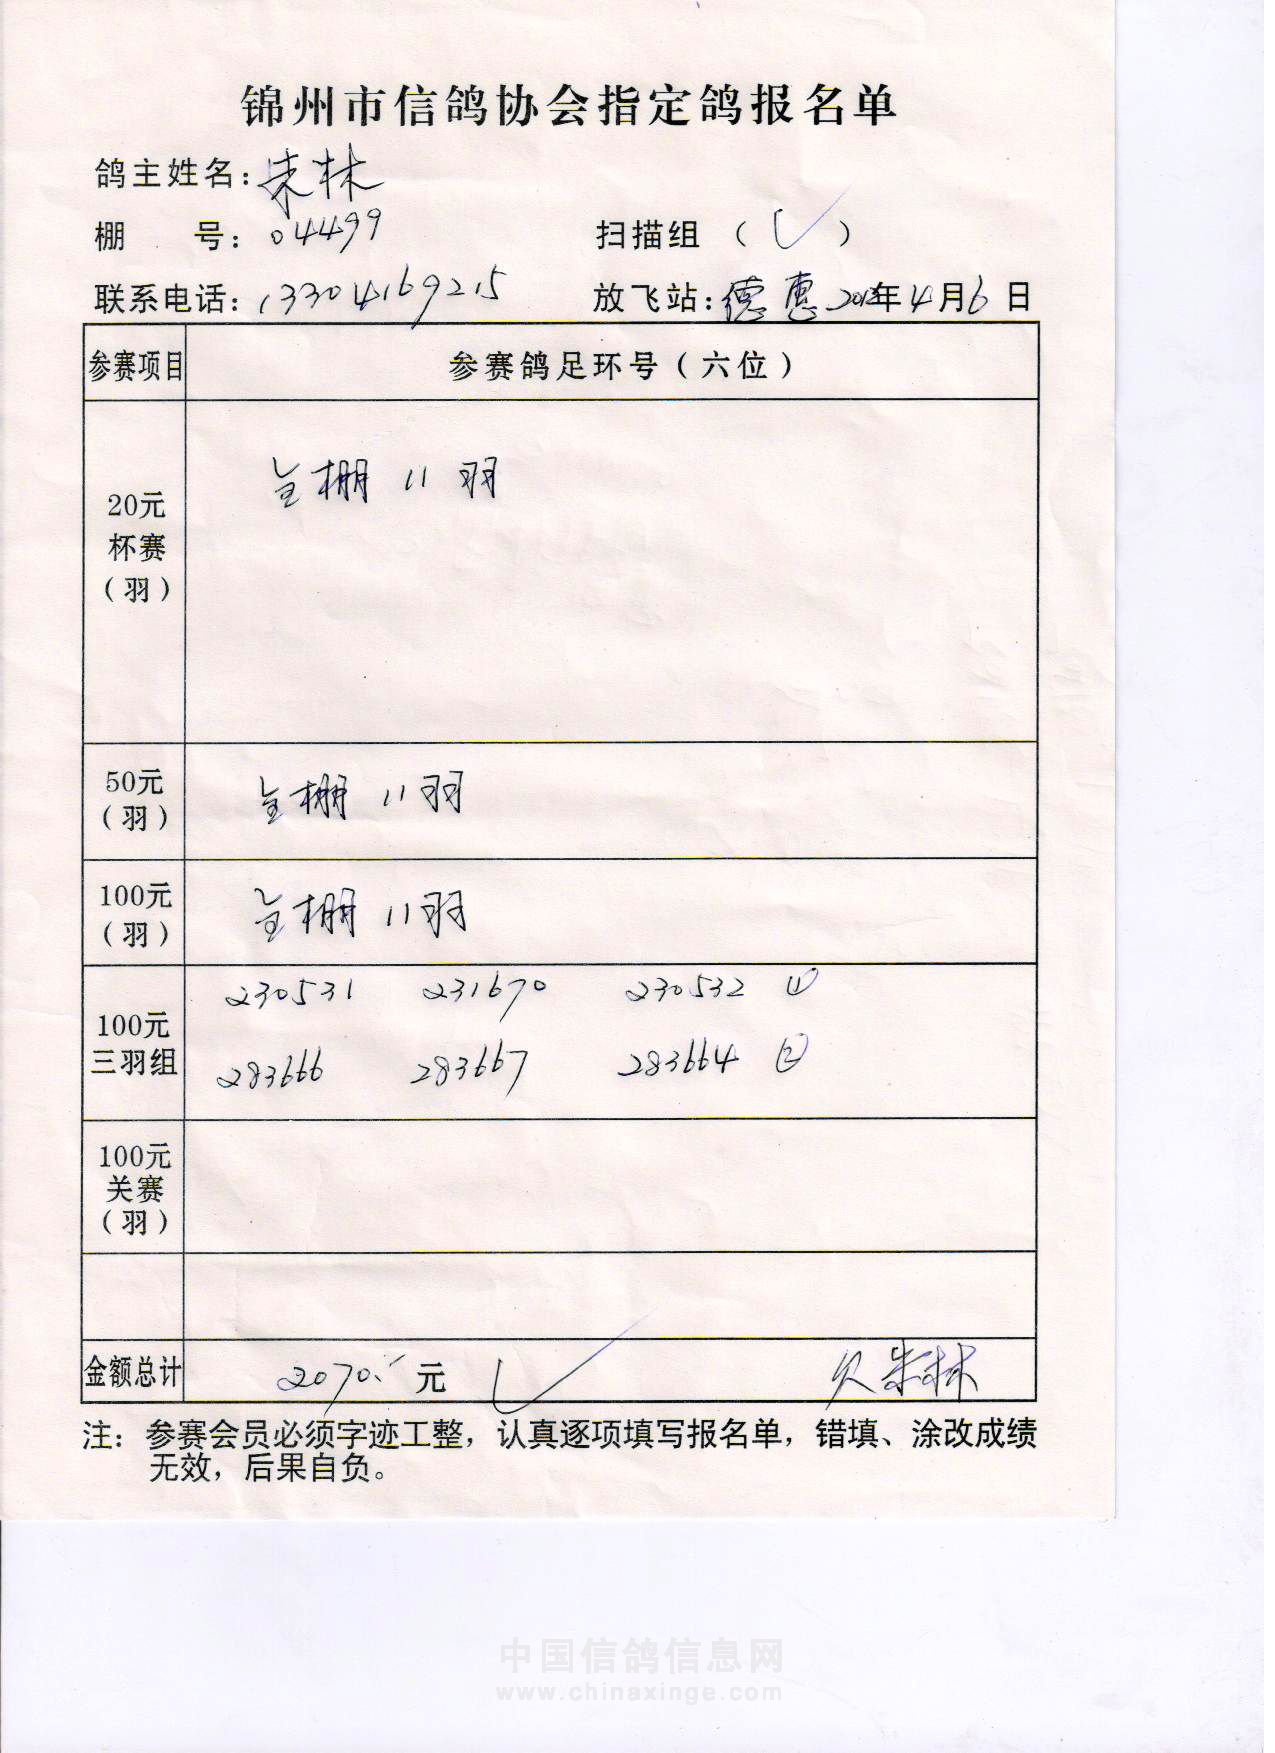 锦州市信鸽协会指定鸽报名单
鸽主姓名：朱林
棚 号：04499 扫描组 （✓）
联系电话：13304169215 放飞站：德惠 年4月6日
参赛项目 参赛鸽足环号（六位）
20元
杯赛
（羽）
全棚 11 羽
50元
（羽）
全棚 11羽
100元
（羽）
全棚 11羽
100元
三羽组
230531 231670 230532 ①
283666 283667 283664 ②
100元
关赛
（羽）
金额总计 2070. 元 ✓ 朱林
注：参赛会员必须字迹工整，认真逐项填写报名单，错填、涂改成绩
无效，后果自负。
中国信鸽信息网
www.chinaxinge.com